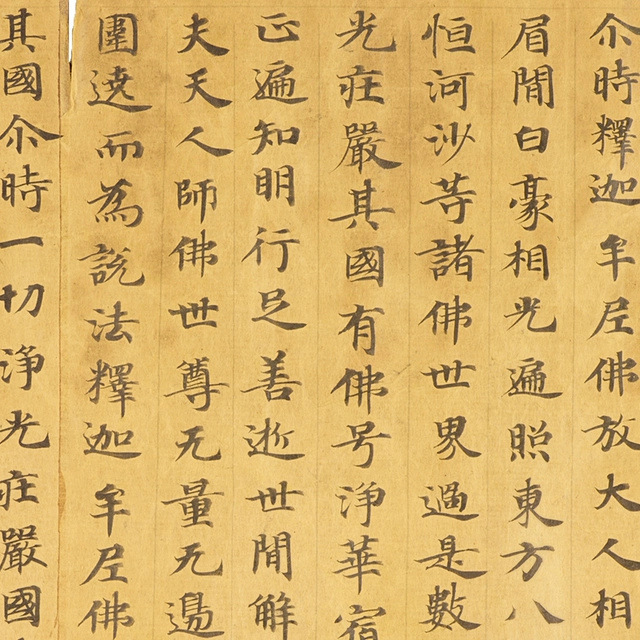 尒時釋迦牟尼佛放大人相
眉閒白豪相光遍照東方八
恒河沙等諸佛世界過是數
光莊嚴其國有佛号淨華宿
正遍知明行足善逝世閒解
夫天人師佛世尊无量无邊
圍遶而為說法釋迦牟尼佛
其國尒時一切淨光莊嚴國